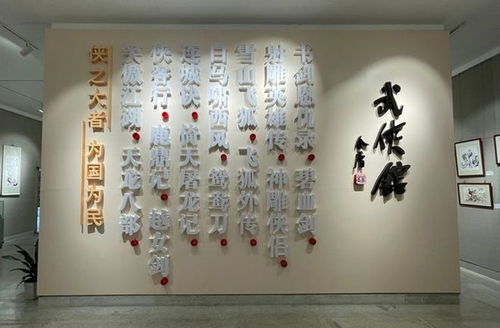 武侠馆
金庸
书剑恩仇录 碧血剑
射雕英雄传 神雕侠侣
雪山飞狐 飞狐外传
白马啸西风 鸳鸯刀
连城诀 倚天屠龙记
侠客行 鹿鼎记 越女剑
笑傲江湖 天龙八部
侠之大者 为国为民